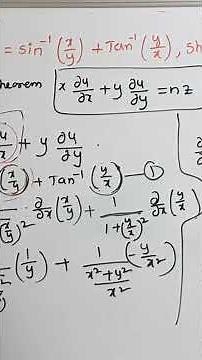 = sin⁻¹(x/y) + Tan⁻¹(y/x), Sh
heorem x ∂u/∂x + y ∂u/∂y = nz
+ y ∂u/∂y .
(x/y) + Tan⁻¹(y/x) — ①
∂/∂x (x/y) + 1/(1+(y/x)²) ∂/∂x (y/x)
(1/y) + 1/((x²+y²)/x²) (-y/x²)